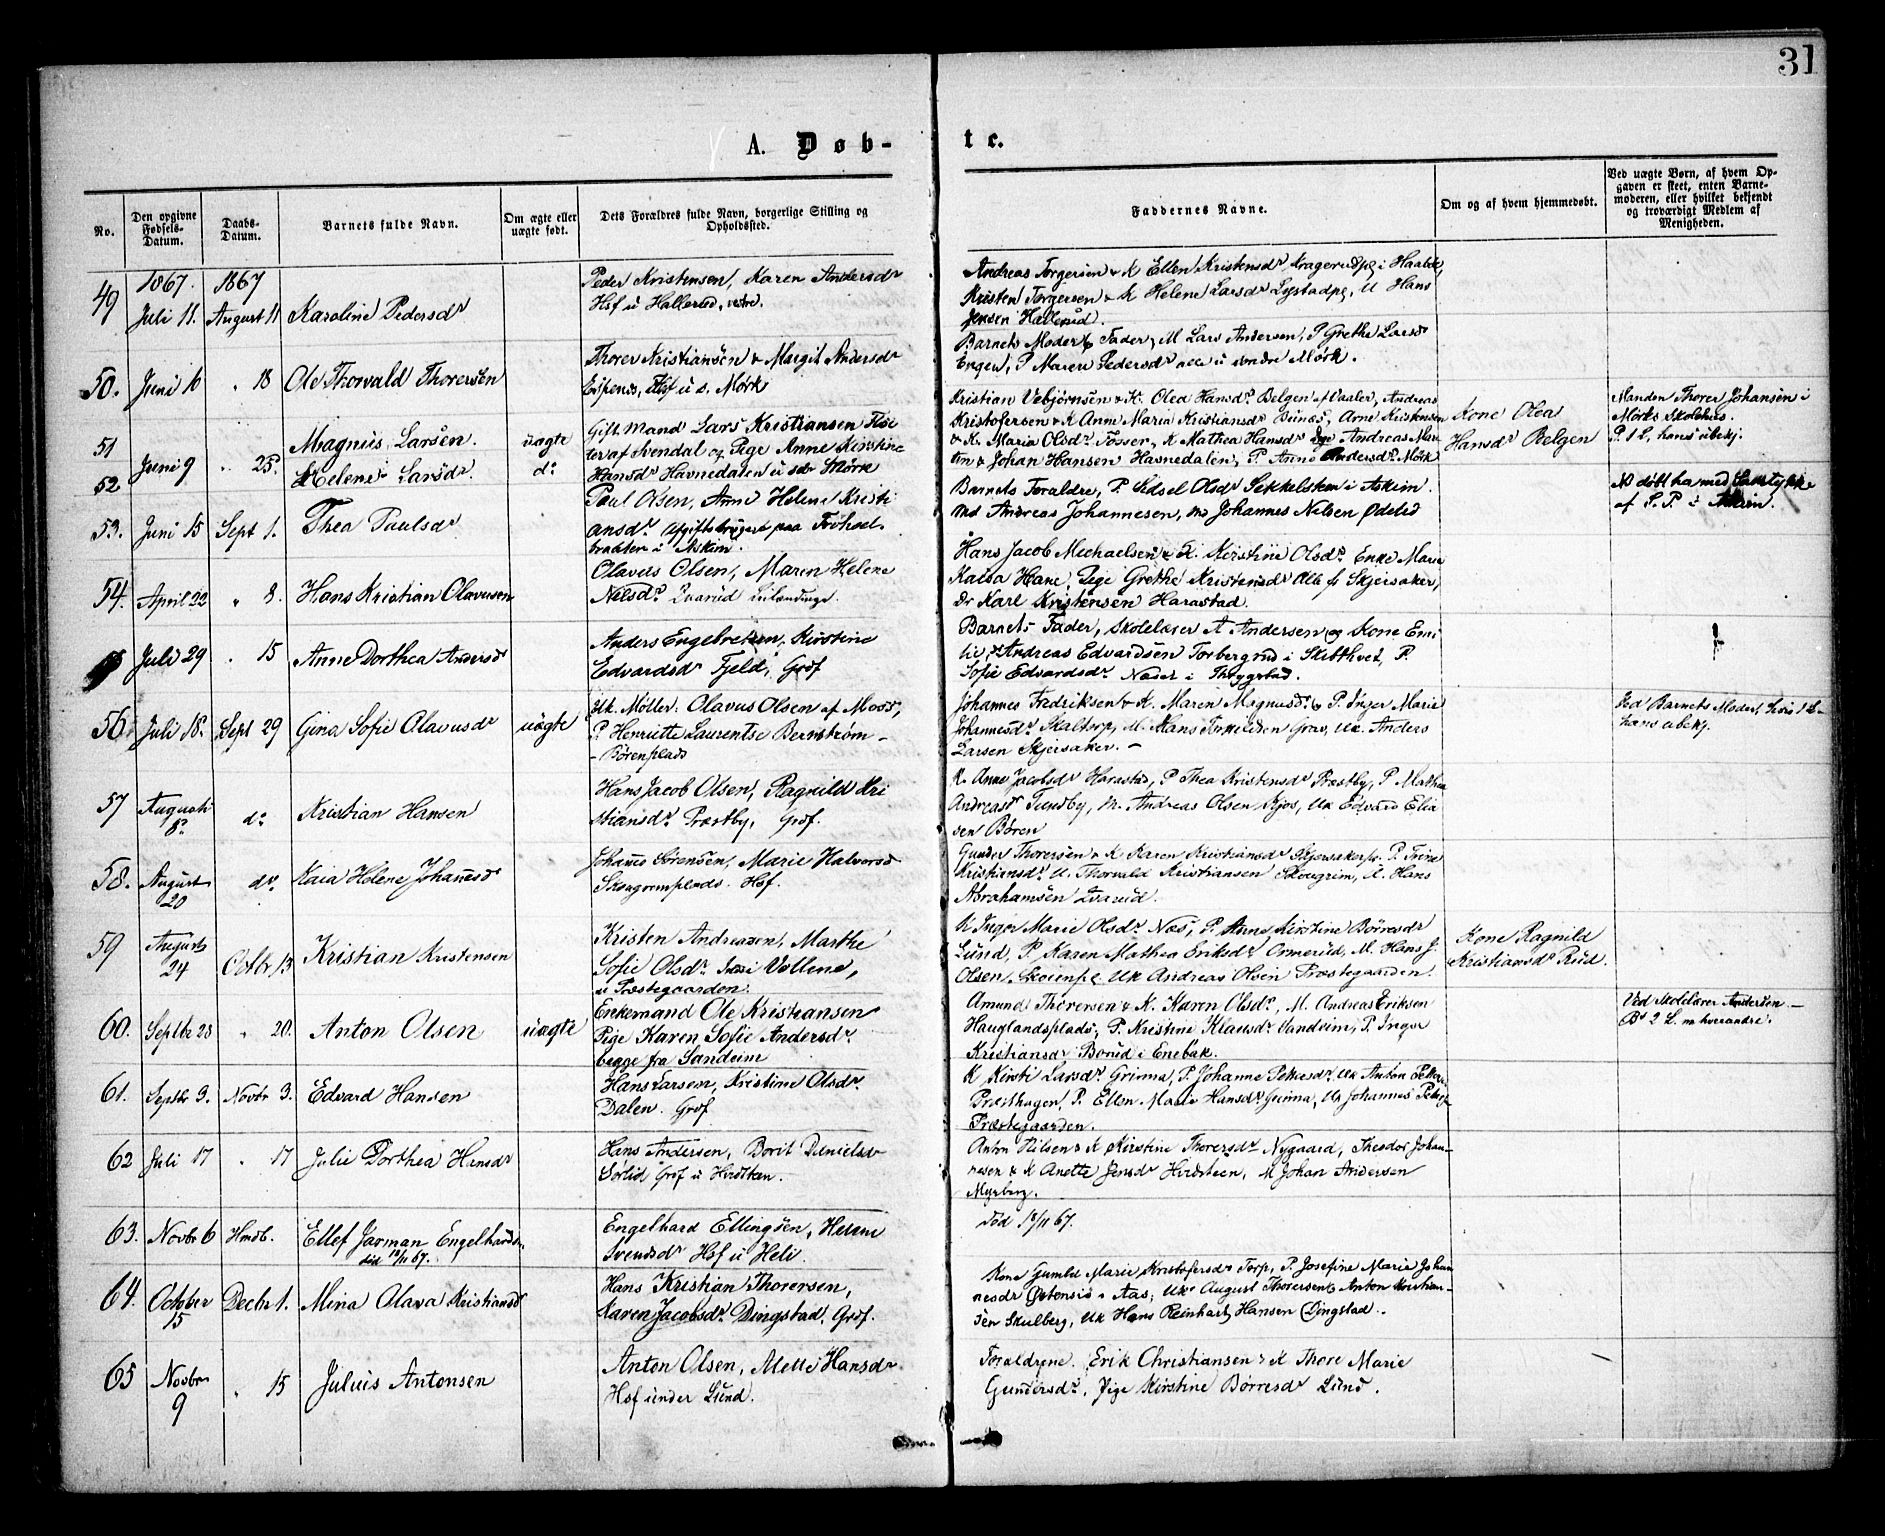 31
A. Døb-
te.
No.
Den opgivne Fødsels-Datum.
Daabs-Datum.
Barnets fulde Navn.
Om ægte eller uægte født.
Dets Forældres fulde Navn, borgerlige Stilling og Opholdssted.
Faddernes Navne.
Om og af hvem hjemmedøbt.
Ved uægte Børn, af hvem Op-
gaven er skeet, enten Barne-
moderen, eller hvilket bekjendt
og troværdigt Medlem af
Menigheden.
1867. 1867
49 Juli 11. August 11 Karoline Pedersdr
Peder Kristensen, Karen Andersdr
Hsf u Hallerud, vestre.
Andreas Torgersen & K Ellen Kristensdr
Kristen Torgersen & K Helene Larsdr U Hans
Jensen Hallerud.
50. Juni 16 " 18 Ole Thorvald Thorersen
Thorer Kristiansen & Margit Andersdr
Hsf u s. Mørk
Barnets Moder & Fader, M Lars Andersen, P Grethe Larsdr
Engen, P Maren Pedersdr alle u søndre Mørk.
51 Juni 9 " 25. Magnus Larsen. uægte
52 Helene Larsdr. do
Gift Mand Lars Kristiansen
af Svendal og Pige Anne Kirstine
Hansdr Havnedalen u sdr Mørk
Kristian Vebjørnsen & K. Olea Hansdr Belgen af Vaaler, Andreas
Kristofersen & K Anne Maria Kristiansdr Arne Kristensen
& K. Maria Olsdr Fosser, K Mathea Hansdr Andreas Mar-
tin & Johan Hansen Havnedalen, P. Anne Andersdr Mørk
Kone Olea
Hansdr Belgen
Manden Thorer Johansen i
Mørks Skolehus.
P. 1 L, hans ubekj.
53. Juni 15 Sept 1. Thea Paulsdr
Paul Olsen, Anne Helene Kristi
ansdr paa
i Askim.
Barnets Foraldre, P. Sidsel Olsdr Sekkelsten i Askim.
Andreas Johannesen, Johannes Nilsen Ødelid
af S. P. i Askim.
54. April 22 " 8. Hans Kristian Olavusen
Olavus Olsen, Maren Helene
Nelsdr Leilændinge.
Hans Jacob Michaelsen & K. Kirstine Olsdr Enke Marie
Kaisa Hane, Pige Grethe Kristensdr Alle fr Skjersaker,
Karl Kristensen Harastad.
55 Juli 29 " 15 Anne Dorthea Andersdr
Anders Engebretsen, Kirstine
Edvardsdr Fjeld, Grdf
Barnets Fader, Skolelærer A Andersen og Kone Emi
lie, Andreas Edvardsen Torbergrud i Skibthvet, P.
Sofie Edvardsdr i Thrygstad.
56 Juli 18. Sept 29 Gina Sofie Olavusdr uægte
Uk. Møller. Olavus Olsen af Moss,
P. Henriette Laurentse Bernstrøm -
- Børenplads
Johannes Fredriksen & K. Maren Magnusdr & P. Inger Marie
Johannesdr Skaltorp, M. Hans Grav, Uk. Anders
Larsen Skjersaker. -
Ved Barnets Moder,
hans ubekj.
57 August 8. do. Kristian Hansen
Hans Jacob Olsen, Ragnild Kri
stiansdr Præstby, Grdf.
K. Anne Jacobsdr Harastad, P Thea Kristensdr Præstby, P Mathea
Andreasdr Tundby, M. Andreas Olsen Uk Edvard Elia
sen Børen
58. August 20 do. Kaia Helene Johansdr
Johannes Sørensen, Marie Halvorsdr
Skougrimplads. Hsf.
Gunder Thorersen & K Karen Kristiansdr P. Trine
Kristiansdr U. Thorvald Kristiansen Skougrim, U. Hans
Abrahamsen
59 August 24 Octbr 13 Kristian Kristensen
Kristen Andreasen, Marthe
Sofie Olsdr Vollene,
u Præstegaarden.
K Inger Marie Olsdr Næs, P. Anne Kirstine Børresdr
Lund, P Karen Mathea Eriksdr Ormerud, M. Hans J.
Olsen, Uk Andreas Olsen Præstegaarden.
Kone Ragnild
Kristiansdr Rud.
60. Septbr 28 " 20. Anton Olsen uægte
Enkemand Ole Kristiansen
Pige Karen Sofie Andersdr
begge fra Sandeim
Amund Thorersen & K. Karen Olsdr, M. Andreas Eriksen
Hauglandsplads, P. Kristine Klausdr Vandeim, P. Inger
Kristiansdr Borud i Enebak.
Ved Skolelærer Andersen -
2 L. m hverandre.
61. Septbr 9. Novbr 3. Edvard Hansen
Hans Larsen, Kristine Olsdr
Dalen. Grdf
K Kirsti Larsdr Grinna, P. Johanne Uk Anton
Præsthagen, P. Ellen Marie Hansdr Grinna, Uk Johannes
Præstegaarden.
62 Juli 17 " 17 Julie Dorthea Hansdr
Hans Andersen, Berit Danielsdr
Sørlid Grdf u
Anton Nilsen & K Kirstine Thorersdr Nygaard, Theodor Johan-
nesen & K Anette Jensdr M Johan Andersen
Myrberg.
63. Novbr 6 Hmdb. Ellef Jarman Engelhardsen
død 18/11 67.
Engelhard Ellingsen, Helene
Svendsdr Hsf u Heli.
død 18/11 67.
64. October 15 Decbr 1. Mina Olava Kristiansdr
Hans Kristian Thorersen,
Karen Jacobsdr Dingstad, Grdf.
Kone Gunild Marie Kristofersdr Torp, P. Josefine Marie Johan
nesdr i Aas, Uk August Thorersen & Anton Kristian-
sen Skulberg, Uk Hans Reinhart Hansen Dingstad.
65 Novbr 9 " 15 Julius Antonsen
Anton Olsen, Mette Hansdr
Hsf under Lund.
Foraldrene. Erik Christiansen & K Thore Marie
Gundersdr, Pige Kirstine Børresdr Lund.